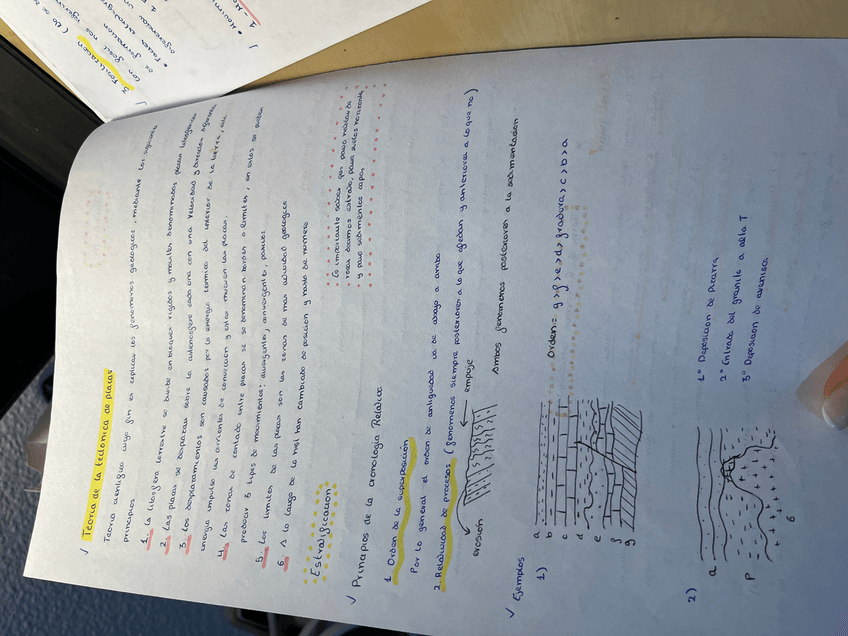 ✓ Teoría de la tectonica de placas
Teoria cientifica cuyo fin es explicar los fenomenos geologicos, mediante los siguientes
principios
1. La litosfera terrestre se divide en bloques rigidos y moviles denominados placas litosfericas
2. Las placas se desplazan sobre la astenosfera cada una con una velocidad y direccion
3. Los desplazamientos son causados por la energia termica del interior de la tierra, esta
energia impulsa las corrientes de conveccion y estas mueven las placas.
4. Las zonas de contacto entre placas se denominan bordes o limites, en ellos se pueden
producir 3 tipos de movimientos: divergente, convergente,
5. Los limites de las placas son las zonas de mas actividad geologica
6. A lo largo de la hist han cambiado de posicion y tanto de numero
Estratificacion
Es importante saber que para hablar de
rocas decimos estrato, para suelos horizonte
y para sedimentos capas
✓ Principios de la cronologia Relativa
1. Orden de la superposición
Por lo general el orden de antiguedad va de abajo a arriba
2. Relatividad de procesos (fenomenos siempre posteriores a lo que afectan y anteriores a lo que no)
erosión
empuje
Ambos fenomenos posteriores a la sedimentacion
✓ Ejemplos
1)
a
b
c
d
e
f
g
Orden = g > f > e > d > fractura > c > b > a
2)
a
P
G
1º Deposicion de Pizarra
2º Entrada del granito a alta T
3º Deposicion de arenisca
3. Fosilizacion